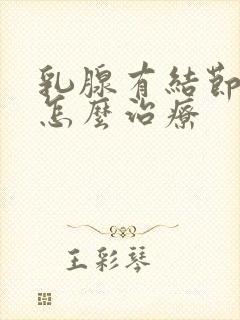 乳腺有結節
怎麼治療
王彩琴